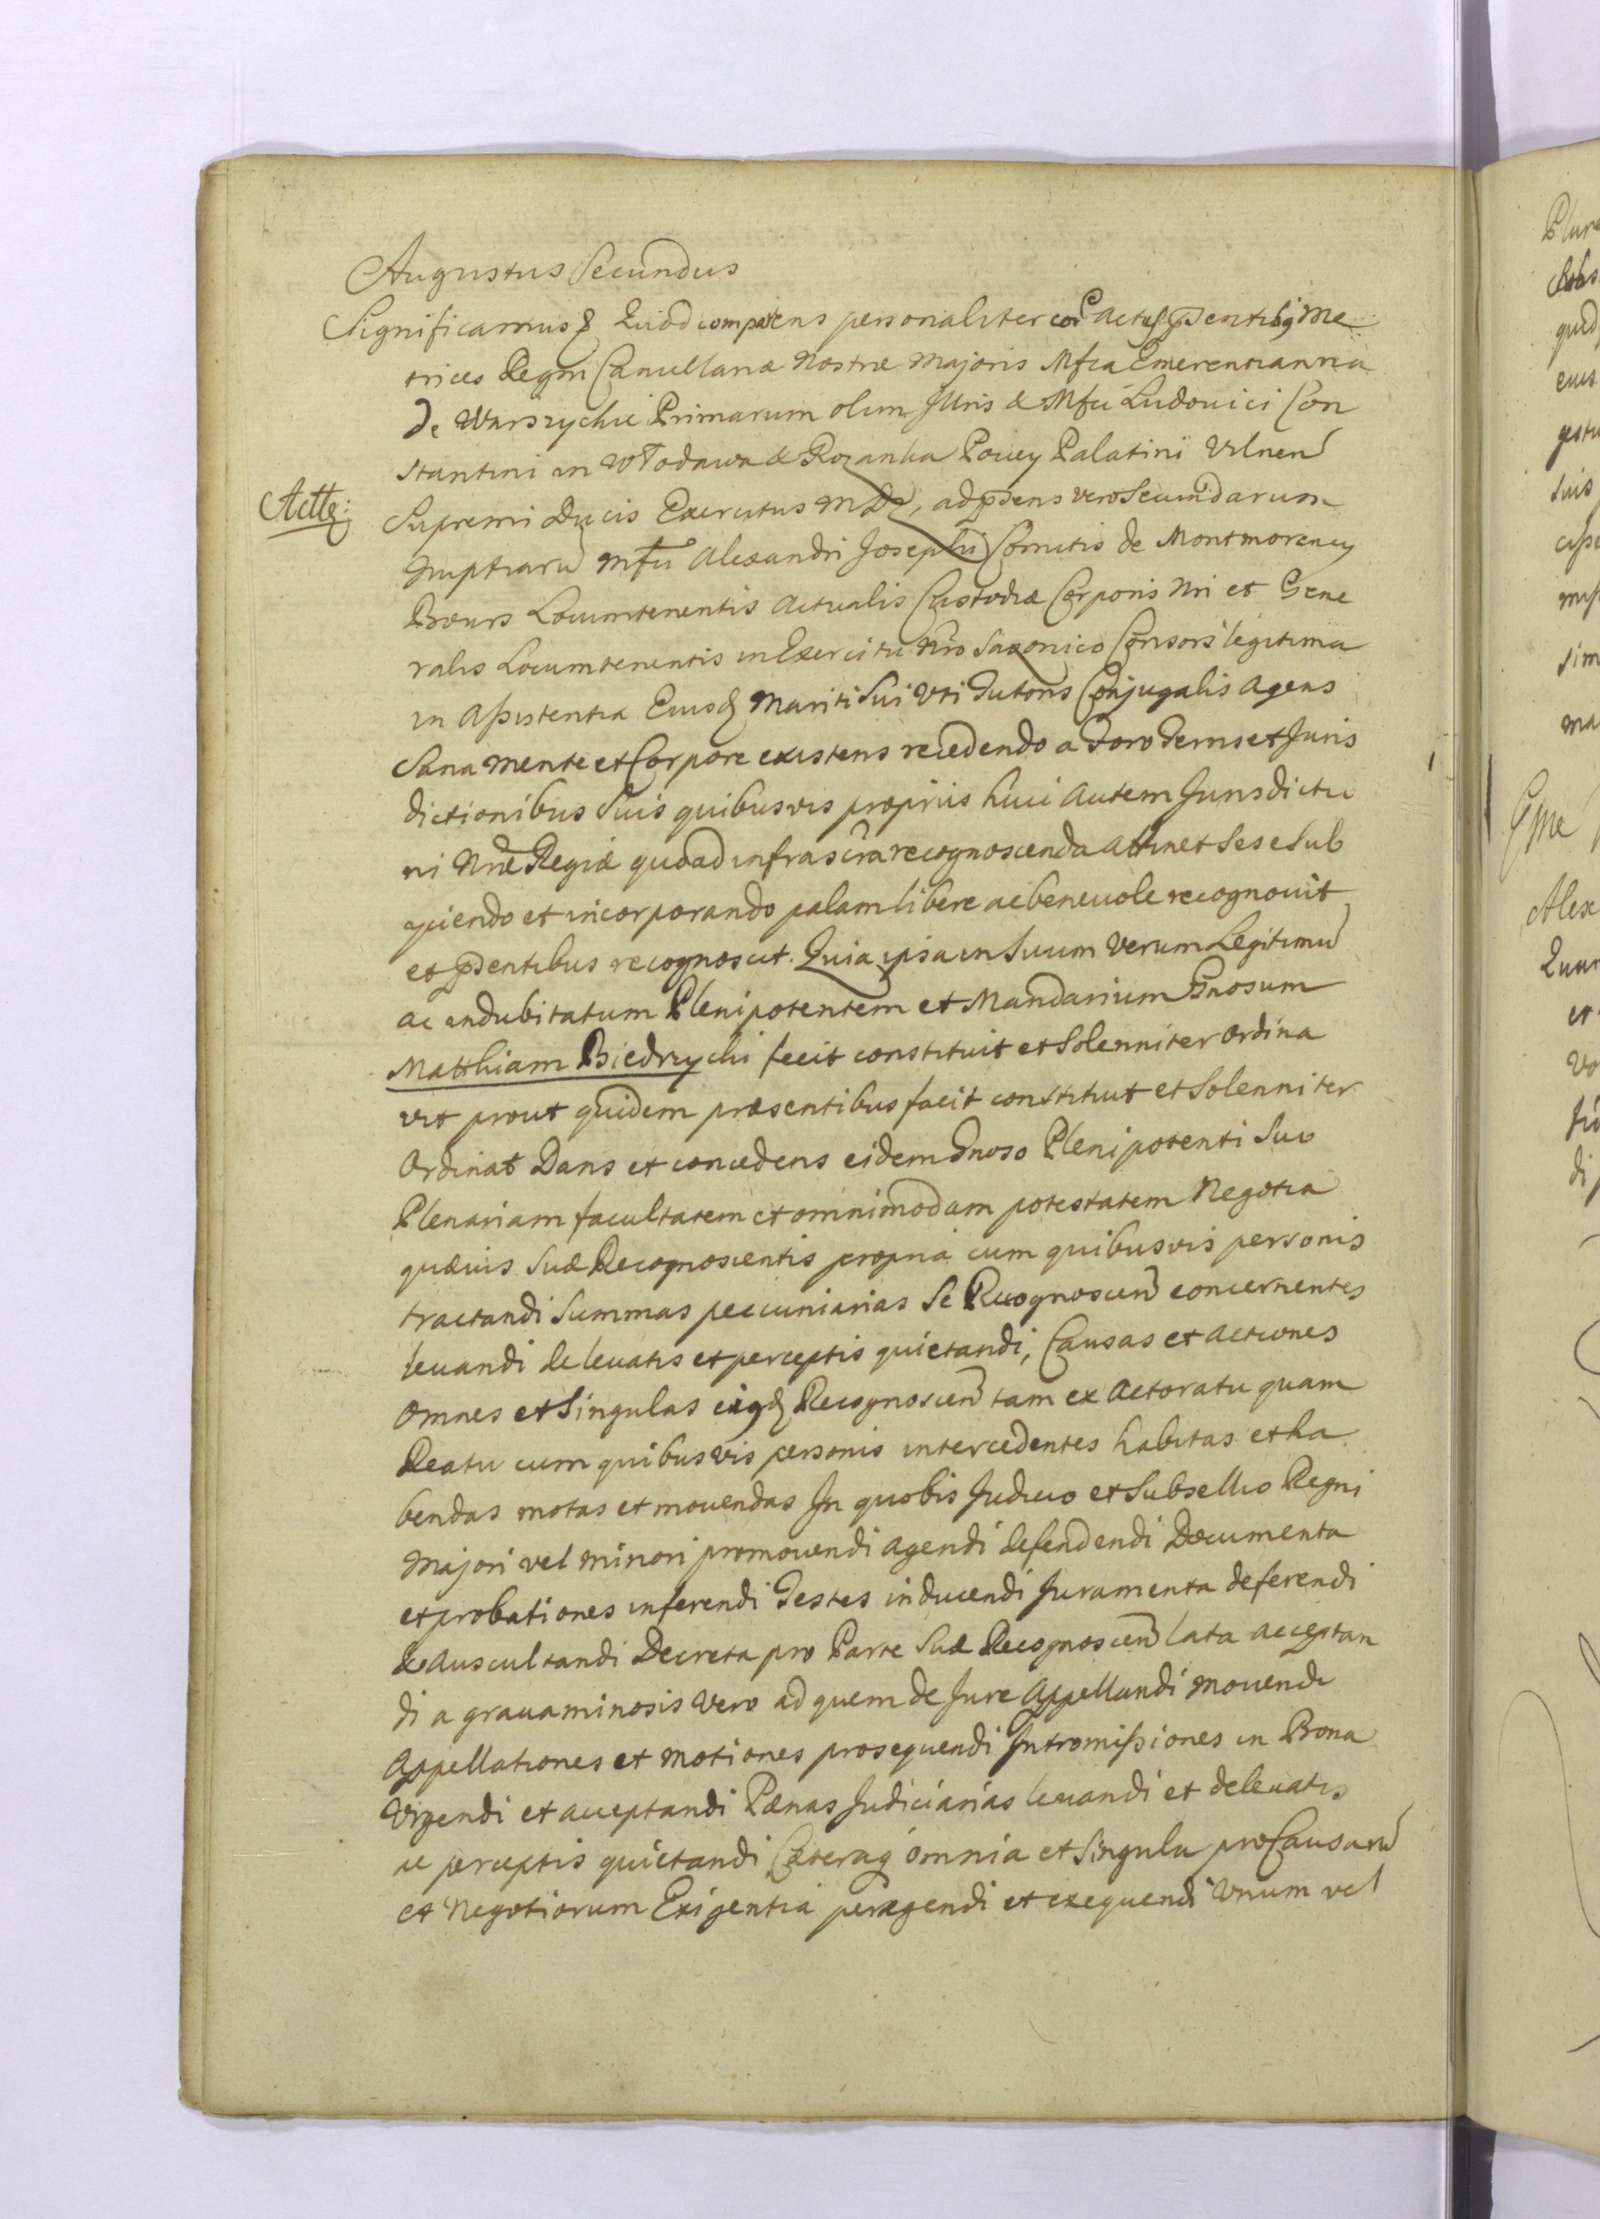 Augustus Secundus
Significamus Quod comparens personaliter cor Actis pntibq Me
trices Regni Cancellariæ Nostræ Majoris Mfca Emerentianna
de Warszychie Primarum olim Illris & Mfci Ludovici Con
stantini in Włodawa & Rozanka Pociey Palatini Vilnen
Actte:
Supremi Ducis Exercitus M D L, ad psens vero Secundarum
Nuptiaru Mfci Alexandri Josephi Comitis de Montmorency
Bours Locumtenentis Actualis Custodiæ Corporis Nri et Gene
ralis Locumtenentis in Exercitu Nro Saxonico Consors legitima
in Assistentia Eiusd Mariti Sui Vti Tutoris Conjugalis Agens
Sana mente et Corpore existens recedendo a Foro Terris et Juris
dictionibus Suis quibusvis propriis huic Autem Jurisdictio
ni Nræ Regiæ quoad infrascra recognoscenda attinet Sese Sub
ijciendo et incorporando palam libere ac benevole recognovit
et psentibus recognoscit. Quia ipsa in Suum Verum Legitimu
ac indubitatum Plenipotentem et Mandatarium Gnosum
Matthiam Biedrzychi fecit constituit et Solenniter Ordina
vit prout quidem præsentibus facit constituit et Solenniter
Ordinat Dans et concedens eidem Gnoso Plenipotenti Suo
Plenariam facultatem et omnimodam potestatem Negotia
quævis Suæ Recognoscentis propria cum quibusvis personis
tractandi Summas pecuniarias Se Recognoscen concernentes
levandi de levatis et perceptis quietandi, Causas et Actiones
omnes et Singulas eiqd Recognoscen tam ex Actoratu quam
Reatu cum quibusvis personis intercedentes habitas et ha
bendas motas et movendas In quobis Judicio et Subsellio Regni
Majori vel Minori promovendi Agendi defendendi Documenta
et probationes inferendi Testes inducendi Juramenta deferendi
& Auscultandi Decreta pro Parte Suæ Recognoscen lata acceptan
di a gravaminosis Vero ad quem de Jure Appellandi Movendi
Appellationes et Motiones prosequendi Intromissiones in Bona
Vrgendi et acceptandi Pænas Judiciarias levandi et de levatis
ac perceptis quietandi Cæteraq omnia et Singula pro Causaru
et Negotiorum Exigentia peragendi et exequendi Vnum vel